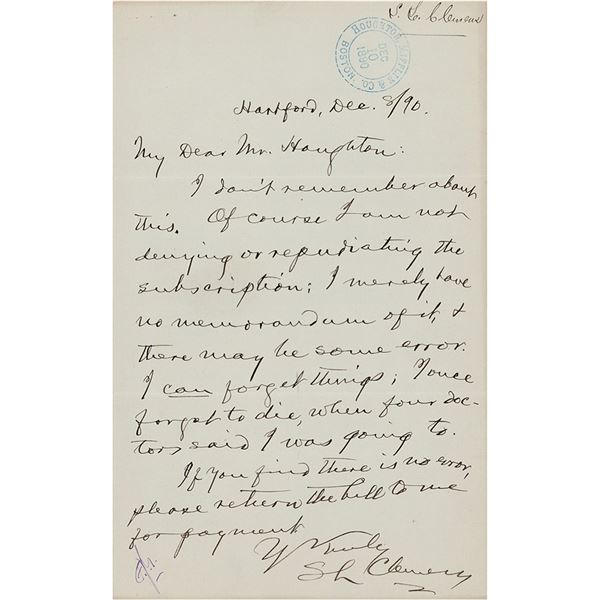 S. L. Clemens
HOUGHTON MIFFLIN & CO. BOSTON
DEC
10
1890
Hartford, Dec. 8/90.
My Dear Mr. Houghton:
I don't remember about
this. Of course I am not
denying or repudiating the
subscription; I merely have
no memorandum of it, &
there may be some error.
I can forget things; I once
forgot to die, when four doc-
tors said I was going to.
If you find there is no error,
please return the bill to me
for payment
Y Truly
SL Clemens